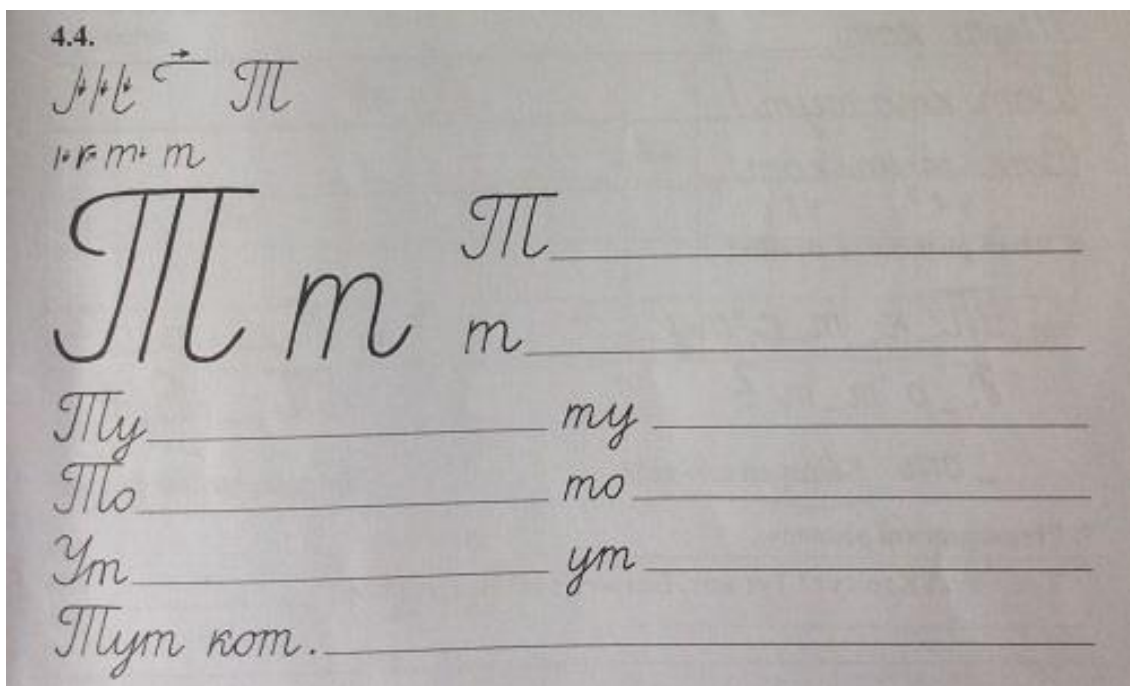 4.4.
Т
т
Т т
Т
т
Ту ту
То то
Ут ут
Тут кот.